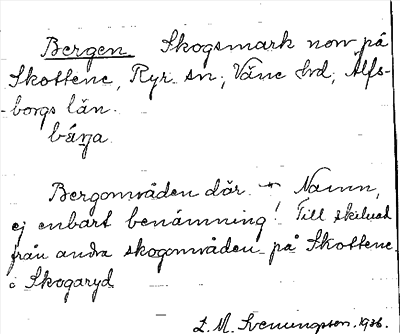 Bergen. Skogsmark norr på
Skottene, Ryr sn, Väne hd, Älfs-
borgs län.
Bergområden där. Namn,
ej enbart benämning! Till skilnad
från andra skogområden på Skottene
o Skogaryd
1936.